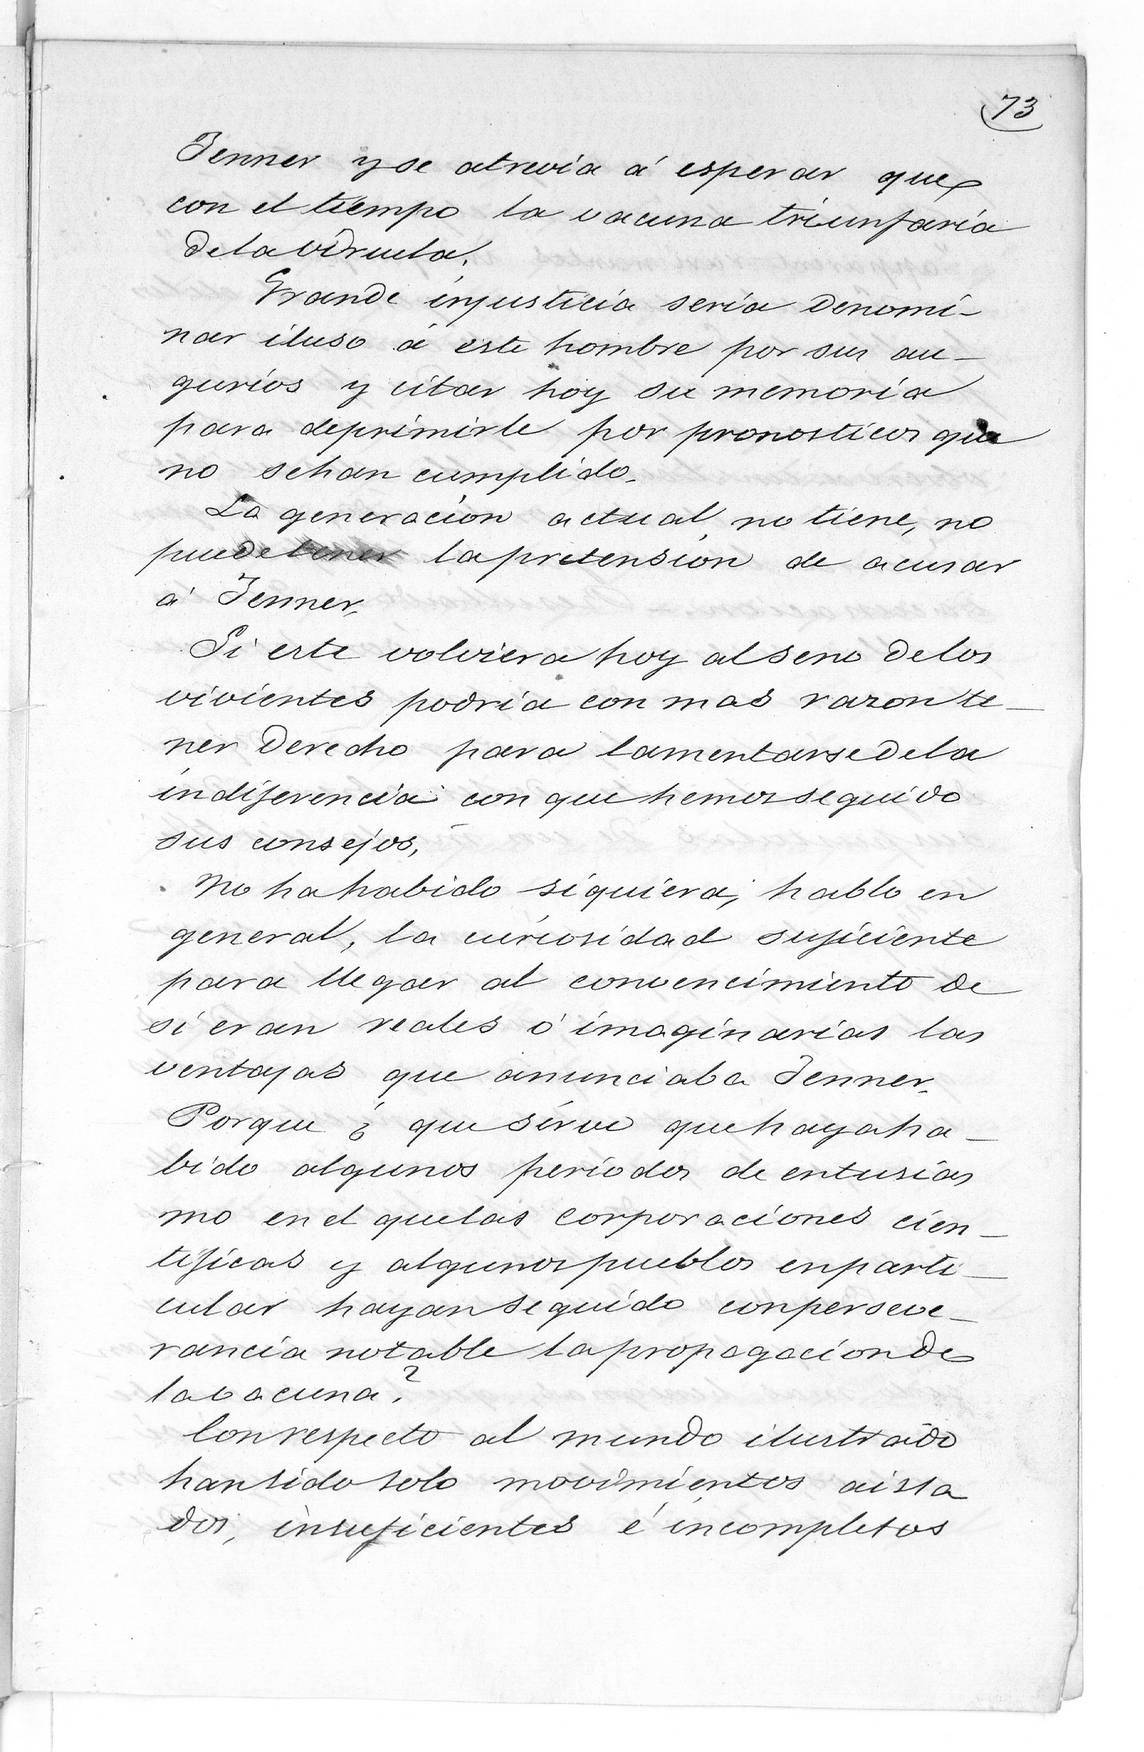 73
Jenner y se atrevia á esperar que
con el tiempo la vacuna triunfaria
de la viruela.
Grande injusticia seria denomi-
nar iluso á este hombre por sus au-
gurios y citar hoy su memoria
para deprimirle por pronosticos que
no se han cumplido.
La generacion actual no tiene, no
puede tener la pretension de acusar
á Jenner.
Si este volviera hoy al seno de los
vivientes podria con mas razon te-
ner derecho para lamentarse de la
indiferencia con que hemos seguido
sus consejos.
No ha habido siquiera, hablo en
general, la curiosidad suficiente
para llegar al convencimiento de
si eran reales ó imaginarias las
ventajas que anunciaba Jenner.
Porque ¿ que sirve que haya ha-
bido algunos periodos de entusias
mo en el que las corporaciones cien-
tificas y algunos pueblos en parti-
cular hayan seguido con perseve-
rancia notable la propagacion de
la vacuna?
Con respecto al mundo ilustrado
han sido solo movimientos aisla
dos, insuficientes é incompletos